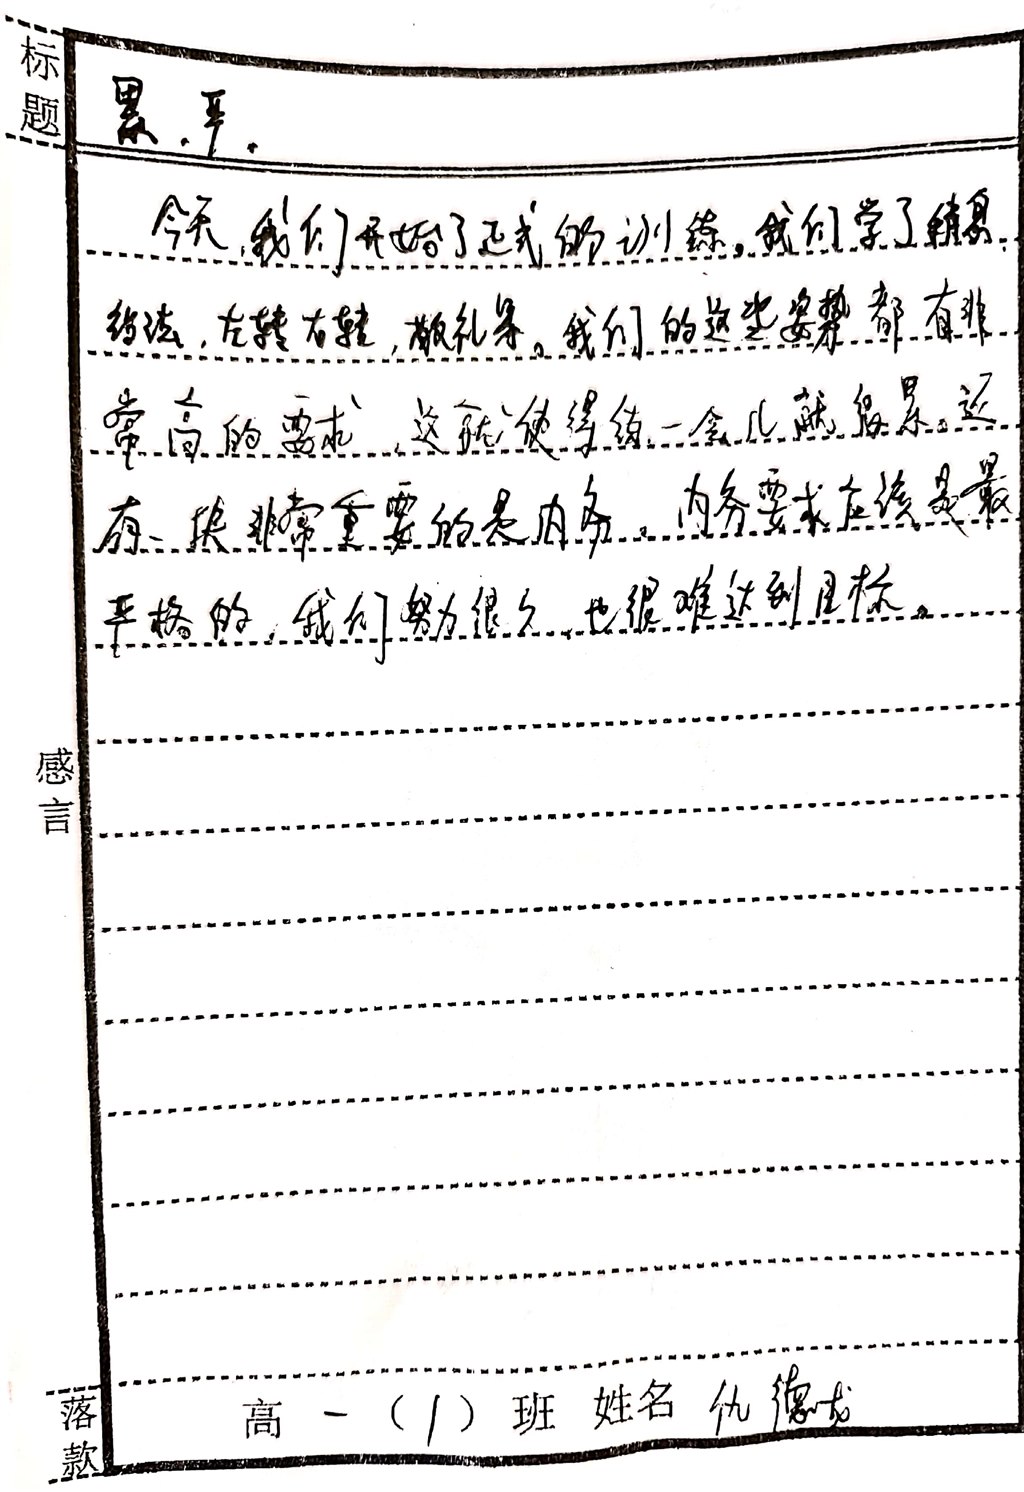 标题
累.严.
今天,我们开始了正式的训练。我们学了
,左转右转,敬礼等。我们的这些姿势都有非
常高的要求,这就使得练一会儿就很累。还
有一块非常重要的是内务。内务要求应该是最
严格的,我们努力很久,也很难达到目标。
感言
落款
高一(1)班 姓名 仇德